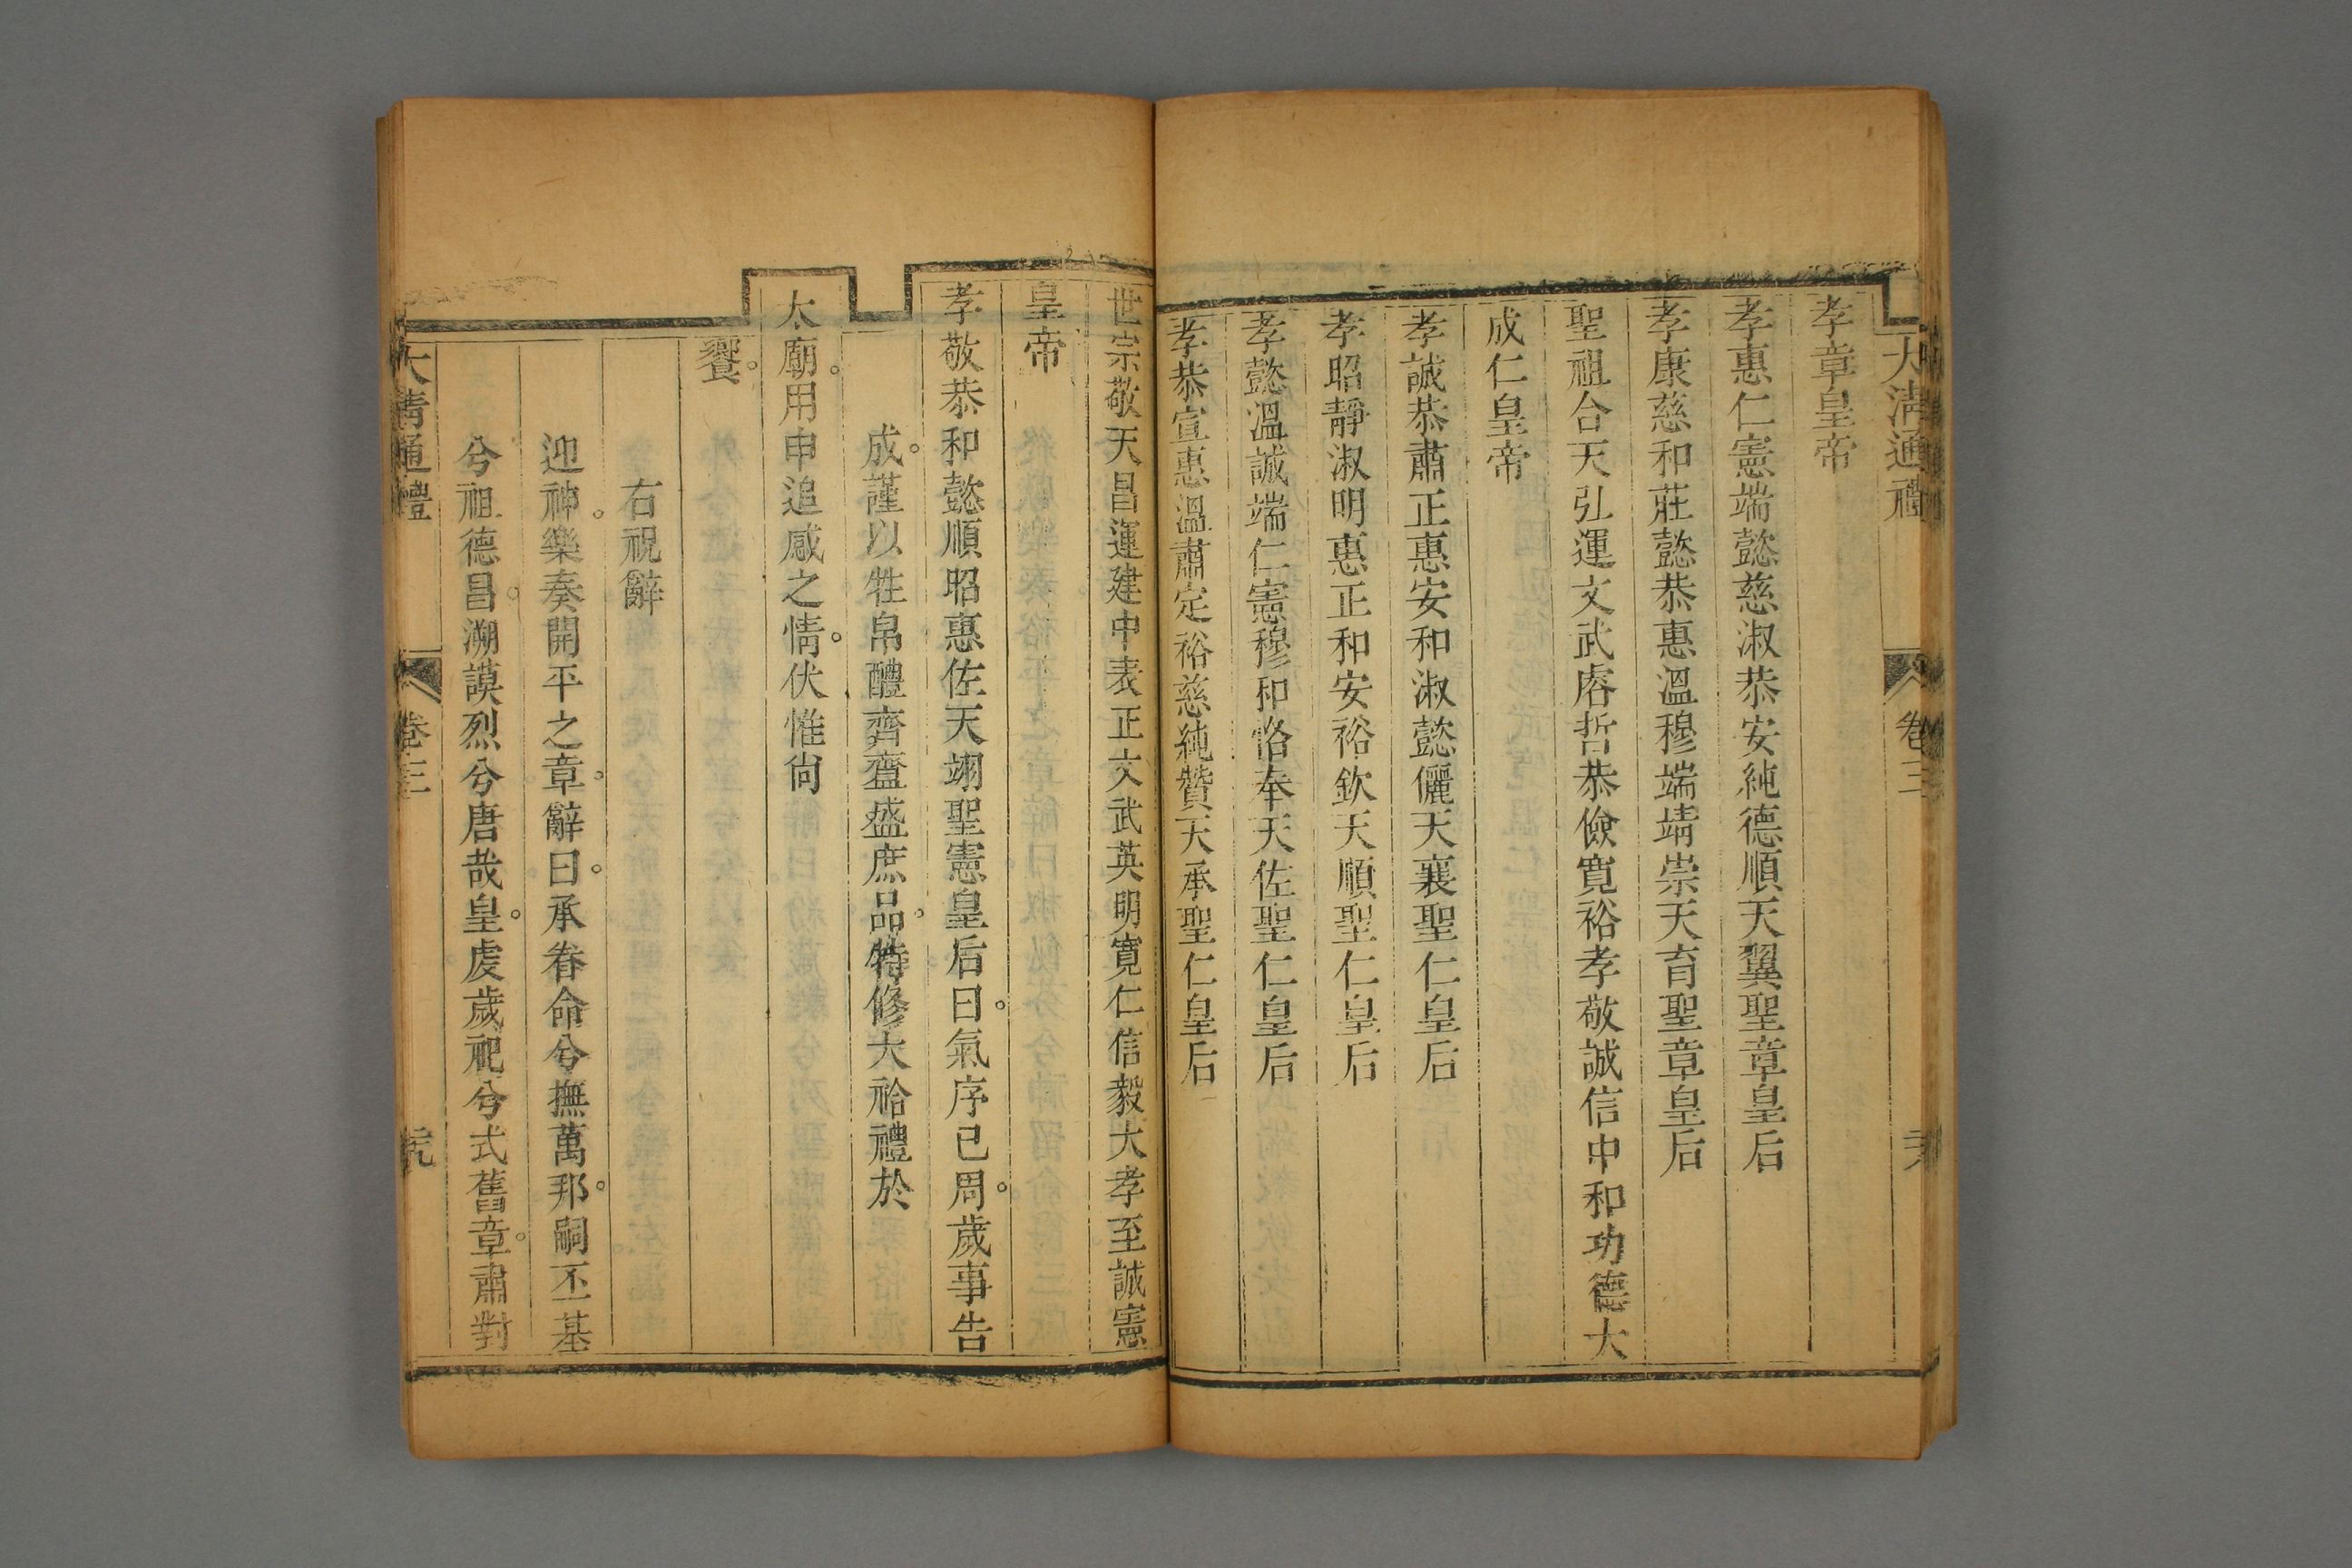 大清通禮 卷三
孝章皇帝
孝惠仁憲端懿慈淑恭安純德順天翼聖章皇后
孝康慈和莊懿恭惠溫穆端靖崇天育聖章皇后
聖祖合天弘運文武睿哲恭儉寬裕孝敬誠信中和功德大
成仁皇帝
孝誠恭肅正惠安和淑懿儷天襄聖仁皇后
孝昭靜淑明惠正和安裕欽天順聖仁皇后
孝懿溫誠端仁憲穆和恪奉天佐聖仁皇后
孝恭宣惠溫肅定裕慈純贊天承聖仁皇后
世宗敬天昌運建中表正文武英明寬仁信毅大孝至誠憲
皇帝
孝敬恭和懿順昭惠佐天翊聖憲皇后曰。氣序已周。歲事告
成。謹以牲帛醴齊粢盛庶品。特修大祫禮於
太廟。用申追感之情。伏惟尙
饗。
右祝辭
迎神。樂奏開平之章。辭曰。承眷命兮撫萬邦。嗣丕基
兮祖德昌。溯謨烈兮唐哉皇。虔歲祀兮式舊章。肅對
大清通禮 卷三